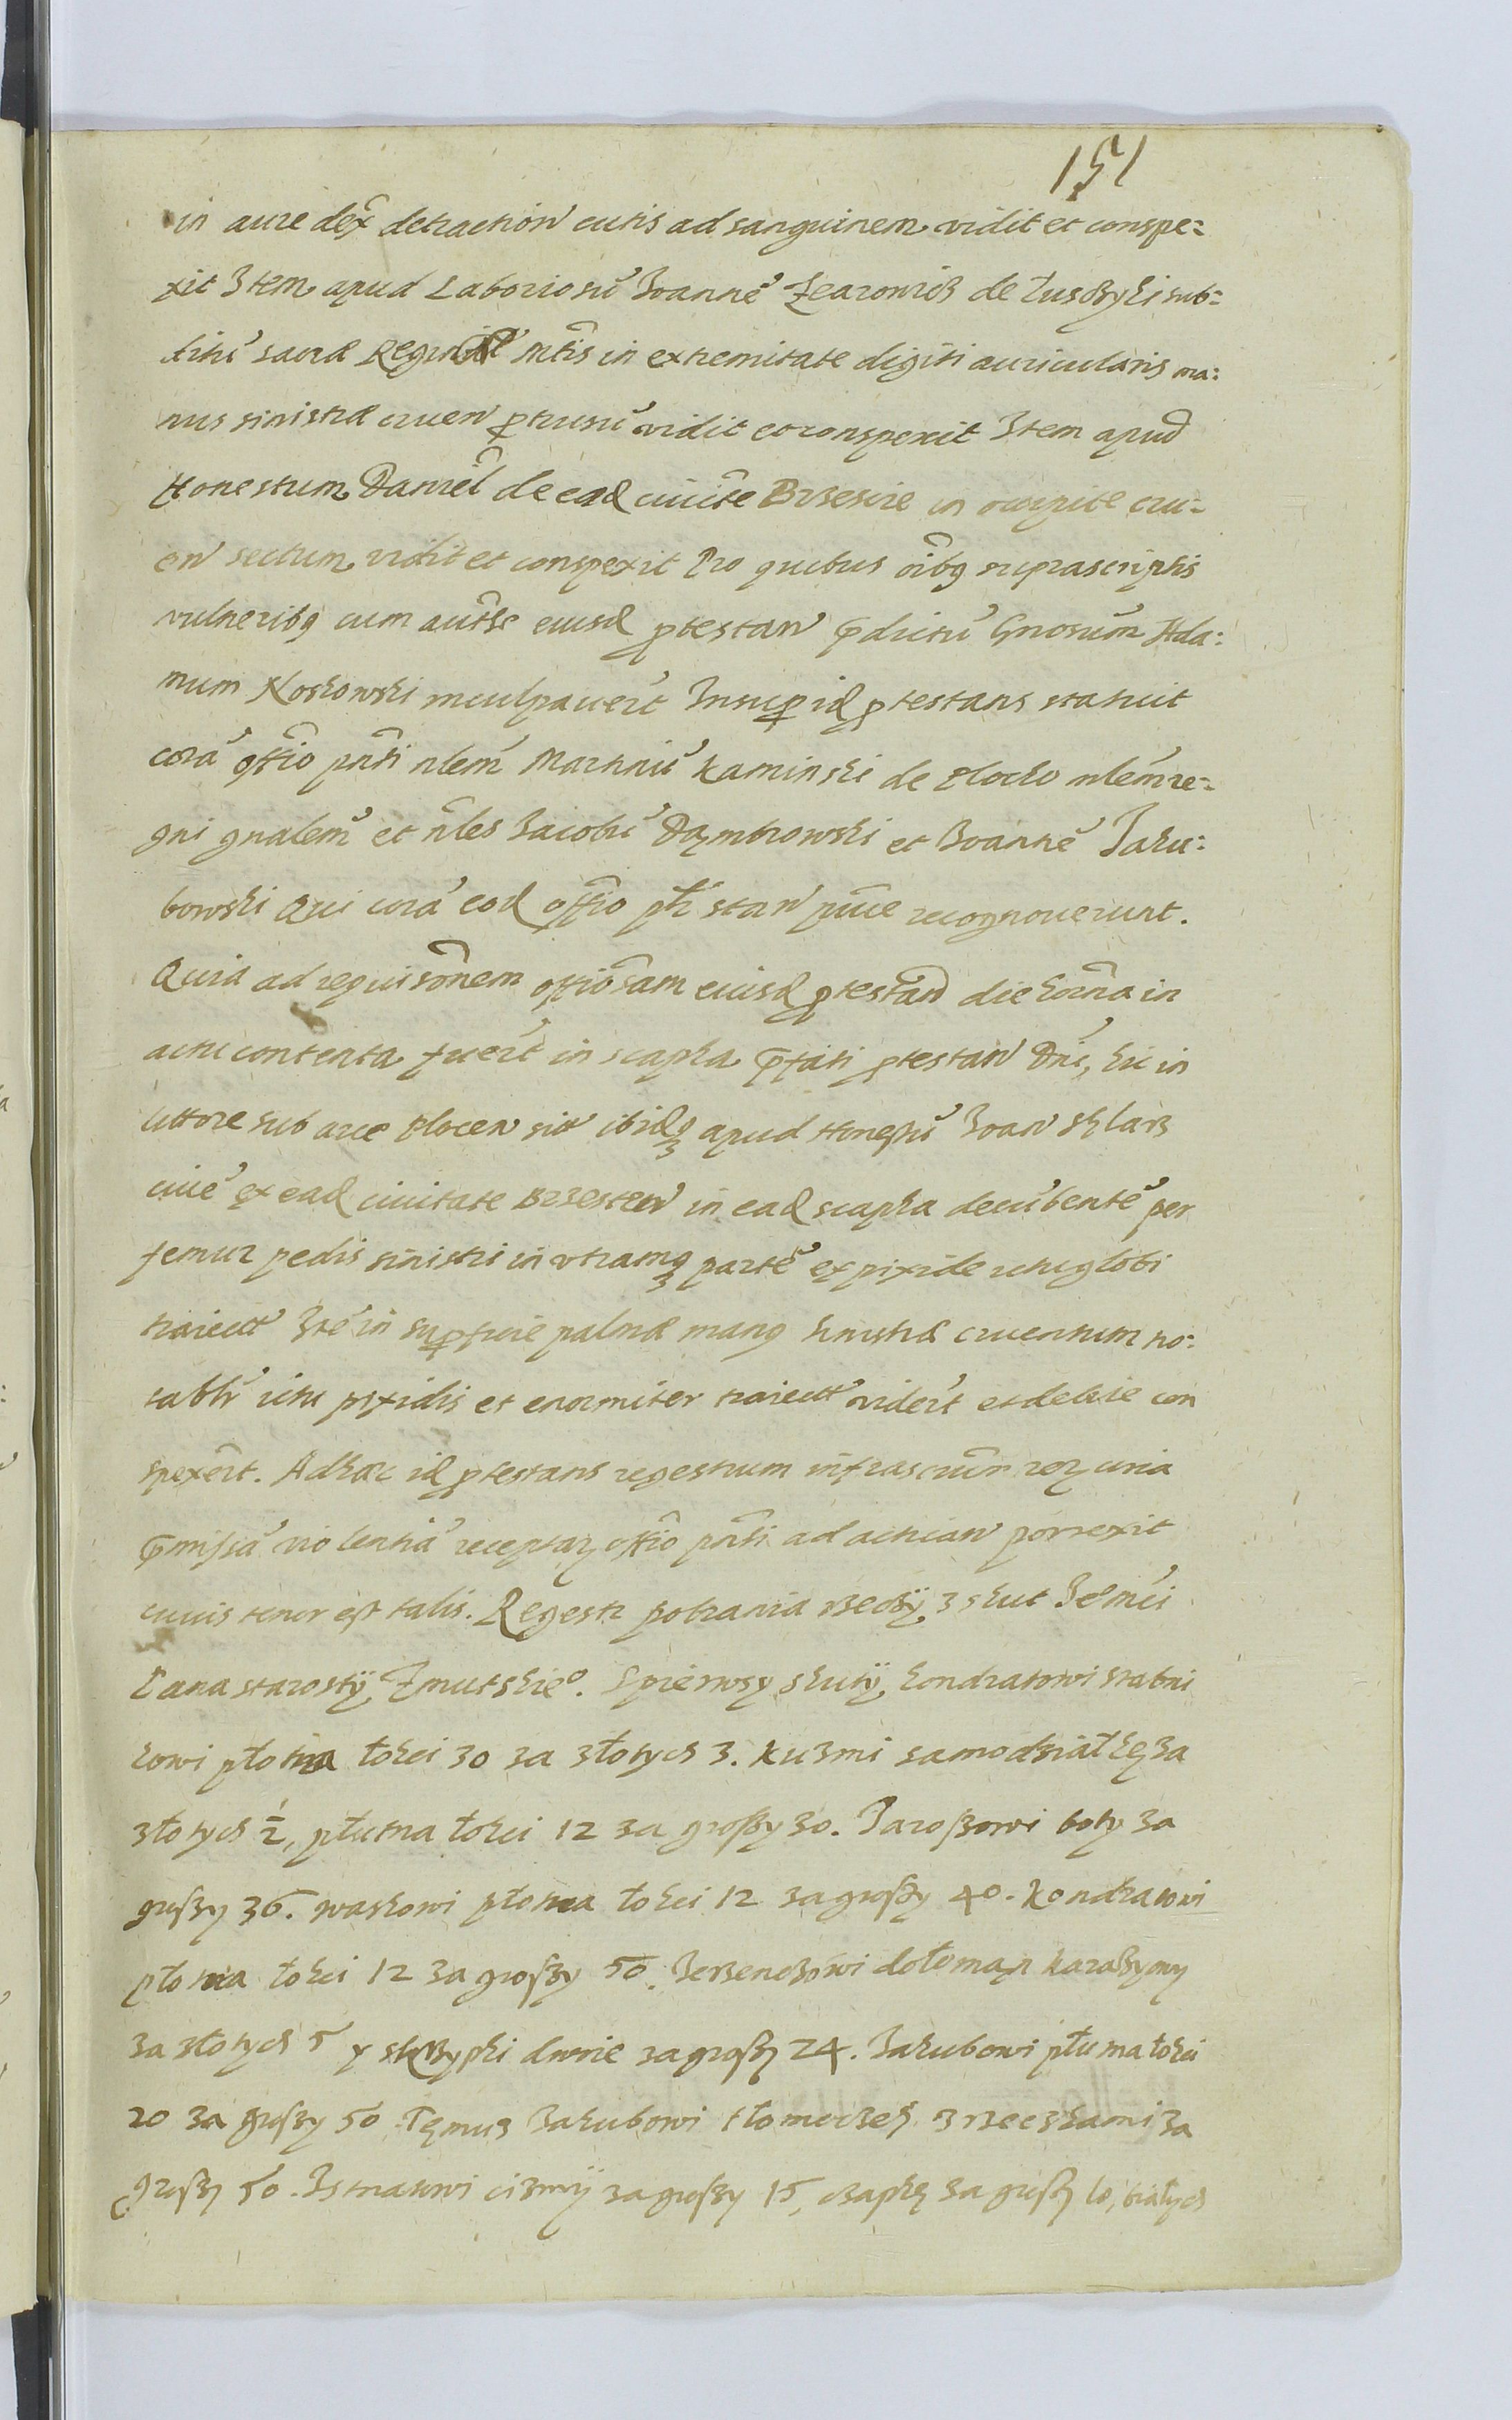 151
in aure dex detraction cutis ad sanguinem vidit et conspe:
xit Item apud Laboriosū Joannē de Łusczyki sub:
ditū sacræ Mtis in extremitate digiti auricularis ma:
nus sinistræ cruen ptusū vidit et conspexit Item apud
Honestum Daniel de ead ciuite Brzescie in occipite cru:
en sectum vidit et conspexit Pro quibus oibq suprascriptis
vulneribq cum auths eiusd ptestan pdictū Gnosum Ada:
mum Noskowski inculpauert Insup id ptestans statuit
corā offio pnti nlem Martinū Kaminski de Plocko mlem re:
gni gnalem et nles Jacobū Dąmbrowski et Joannē Jaku:
bowski Qui corā eod offio ptr stan recognouerunt.
Quia ad requisonem offiosam eiusd ptestand die horna in
actu contenta fuert in scapha pfati ptestan Dni, hic in
littore sub arce Plocen sitt ibidqз apud Honestū Joan
ciuē ex ead ciuitate Brzesten in ead scapha decūbentē per
femur pedis sinistri in vtramqз partē ex pixide ictu globi
traiectt Itē in supficie palmæ manq sinistræ cruentum no:
tabltr ictu pixidis et enormiter traiectt vidert et debite con
spexert. Ad hæc id ptestans regestrum infrascrum rerz
pmissā violentiā receptarz offio pnti ad actican porrexit
cuius tenor est talis. Regestr pobrania rzeczÿ z skut Je mci
Pana starostÿ Zmutskieo. S pierwsy skutÿ, Kondratowi
kowi płotna łokci 30 za złotych 3. Kuzmi samodzialkę za
złotych ½, płutna łokci 12 za groszy 30. Jaroszowi boty za
groszy 36. Waskowi płotna łokci 12 za groszy 40. Kondratowi
płotna łokci 12 za groszy 50. dołoman karazyowy
za złotych 5 y skrzypki dwie za groszy 24. Jakubowi płutna łokci
20 za groszy 50 Tęmuz Jakubowi tłomoczek z rzeczkami za
groszy 50. cizmÿ za groszy 15, czapkę za groszy 10, białych